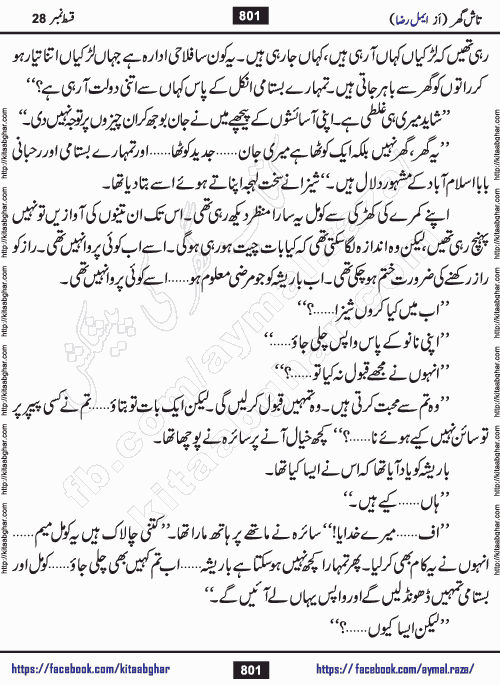 تاش گھر (از ایمل رضا)
801
قسط نمبر 28
رہی تھیں کہ لڑکیاں کہاں آ رہی ہیں، کہاں جا رہی ہیں۔ یہ کون سا فلاحی ادارہ ہے جہاں لڑکیاں اتنا تیار ہو
کر راتوں کو گھر سے باہر جاتی ہیں۔ تمہارے بستامی انکل کے پاس کہاں سے اتنی دولت آ رہی ہے؟‘‘
’’شاید میری ہی غلطی ہے۔ اپنی آسائشوں کے پیچھے میں نے جان بوجھ کر ان چیزوں پر توجہ نہیں دی۔‘‘
’’یہ گھر، گھر نہیں بلکہ ایک کوٹھا ہے میری جان……جدید کوٹھا……اور تمہارے بستامی اور رحبانی
بابا اسلام آباد کے مشہور دلال ہیں۔‘‘ شیزا نے سخت لہجہ اپناتے ہوئے اسے بتا دیا تھا۔
اپنے کمرے کی کھڑکی سے کومل یہ سارا منظر دیکھ رہی تھی۔ اس تک ان تینوں کی آوازیں تو نہیں
پہنچ رہی تھیں، لیکن وہ اندازہ لگا سکتی تھی کہ کیا بات چیت ہو رہی ہو گی۔ اسے اب کوئی پروا نہیں تھی۔ راز کو
راز رکھنے کی ضرورت ختم ہو چکی تھی۔ اب باریشہ کو جو مرضی معلوم ہو……اسے کوئی پروا نہیں تھی۔
’’اب میں کیا کروں شیزا……؟‘‘
’’اپنی نانو کے پاس واپس چلی جاؤ۔‘‘
’’انہوں نے مجھے قبول نہ کیا تو……؟‘‘
’’وہ تم سے محبت کرتی ہیں۔ وہ تمہیں قبول کر لیں گی۔ لیکن ایک بات تو بتاؤ……تم نے کسی پیپر پر
تو سائن نہیں کیے ہوئے نا……؟‘‘ کچھ خیال آنے پر سائرہ نے پوچھا تھا۔
باریشہ کو یاد آیا تھا کہ اس نے ایسا کیا تھا۔
’’ہاں……کیے ہیں۔‘‘
’’اف……میرے خدایا!‘‘ سائرہ نے ماتھے پر ہاتھ مارا تھا۔ ’’کتنی چالاک ہیں یہ کومل میم……
انہوں نے یہ کام بھی کر لیا۔ پھر تمہارا کچھ نہیں ہو سکتا ہے باریشہ……اب تم کہیں بھی چلی جاؤ……کومل اور
بستامی تمہیں ڈھونڈ لیں گے اور واپس یہاں لے آئیں گے۔‘‘
’’لیکن ایسا کیوں……؟‘‘
http://kitaabghar.com http://kitaabghar.com http://kitaabghar.com http://kitaabghar.com
http://kitaabghar.com http://kitaabghar.com http://kitaabghar.com http://kitaabghar.com
fb.com/aymal.raza
kitaabghar.com
کتاب گھر کی پیشکش
https://facebook.com/kitaabghar
801
https://facebook.com/aymal.raza/